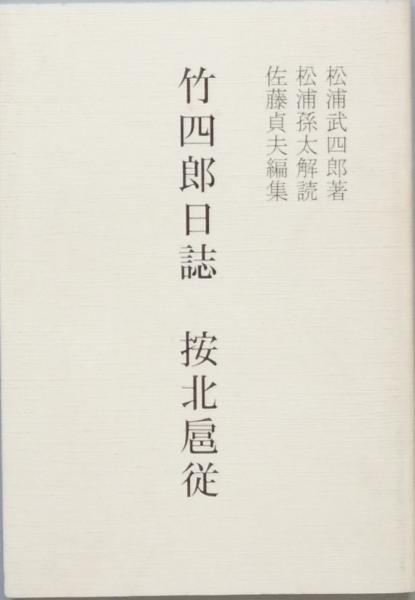 松浦武四郎著
松浦孫太解読
佐藤貞夫編集
竹四郎日誌　按北扈従